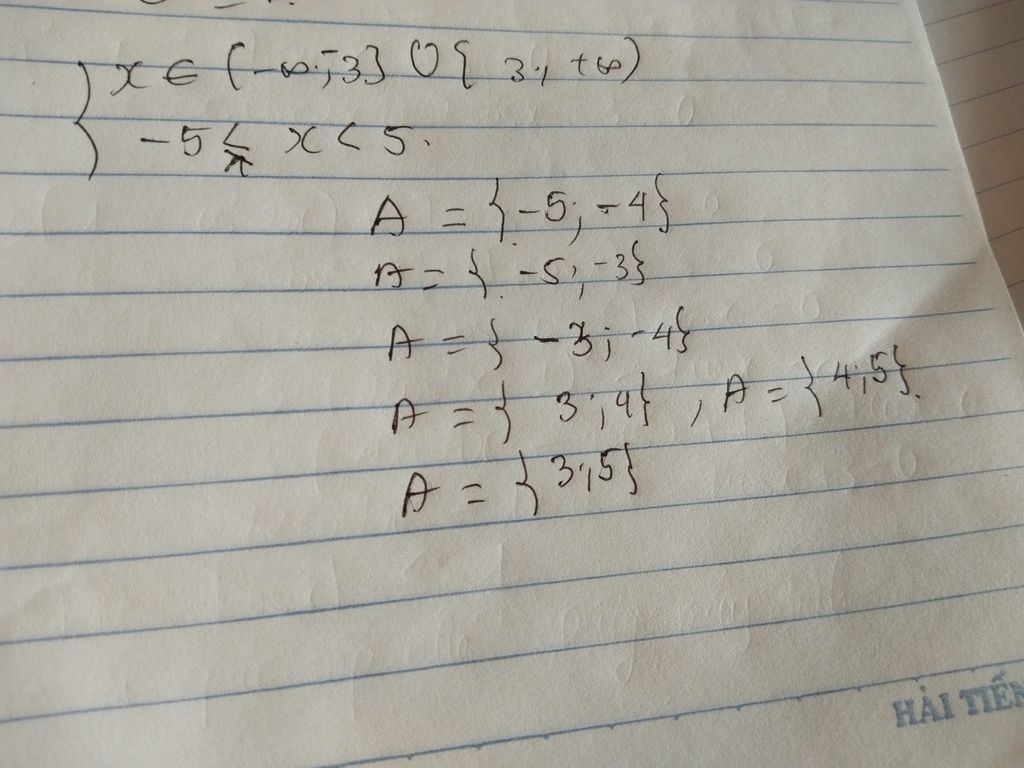 { x ∈ (-∞; -3] ∪ { 3; +∞)
-5 ≤ x < 5.
A = {-5; -4}
A = { -5; -3}
A = { -3; -4}
A = { 3; 4} , A = {4; 5}.
A = {3; 5}
HẢI TIẾN